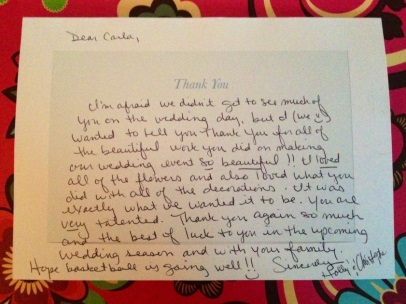 Dear Carla,
Thank You
I'm afraid we didn't get to see much of
you on the wedding day, but I (we :))
wanted to tell you thank you for all of
the beautiful work you did on making
our wedding event so beautiful!! I loved
all of the flowers and also loved what you
did with all of the decorations. It was
exactly what we wanted it to be. You are
very talented. Thank you again so much
and the best of luck to you in the upcoming
wedding season and with your family.
Hope basketball is going well!! Sincerely,
Holly &